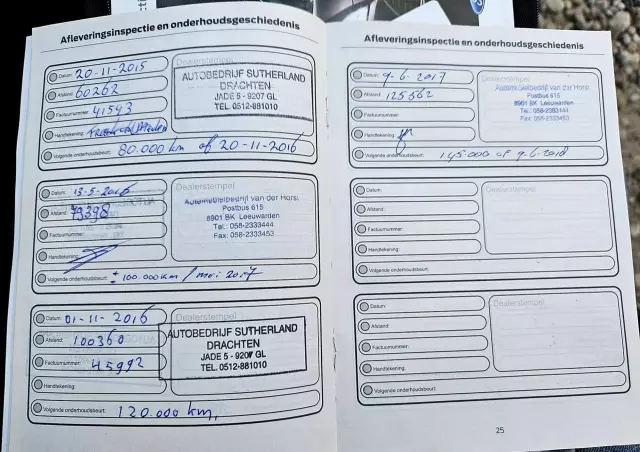 Afleveringsinspectie en onderhoudsgeschiedenis
Datum: 20-11-2015
Afstand: 60262
Factuurnummer: 41543
Handtekening:
Volgende onderhoudsbeurt: 80.000 km of 20-11-2016
Dealerstempel
AUTOBEDRIJF SUTHERLAND
DRACHTEN
JADE 5 - 9207 GL
TEL. 0512-881010
Datum: 13-5-2016
Afstand: 79398
Factuurnummer:
Handtekening:
Volgende onderhoudsbeurt: ± 100.000 km / mei 2017
Dealerstempel
Automobielbedrijf van der Horst
Postbus 615
8901 BK Leeuwarden
Tel.: 058-2333444
Fax: 058-2333453
Datum: 01-11-2016
Afstand: 100360
Factuurnummer: 45992
Handtekening:
Volgende onderhoudsbeurt: 120.000 km,
Dealerstempel
AUTOBEDRIJF SUTHERLAND
DRACHTEN
JADE 5 - 9207 GL
TEL. 0512-881010
Afleveringsinspectie en onderhoudsgeschiedenis
Datum: 9-6-2017
Afstand: 125562
Factuurnummer:
Handtekening:
Volgende onderhoudsbeurt: 145.000 of 9-6-2018
Dealerstempel
Automobielbedrijf van der Horst
Postbus 615
8901 BK Leeuwarden
Tel. 058-2333444
Fax. 058-2333453
Datum:
Afstand:
Factuurnummer:
Handtekening:
Volgende onderhoudsbeurt:
Dealerstempel
Datum:
Afstand:
Factuurnummer:
Handtekening:
Volgende onderhoudsbeurt:
Dealerstempel
25